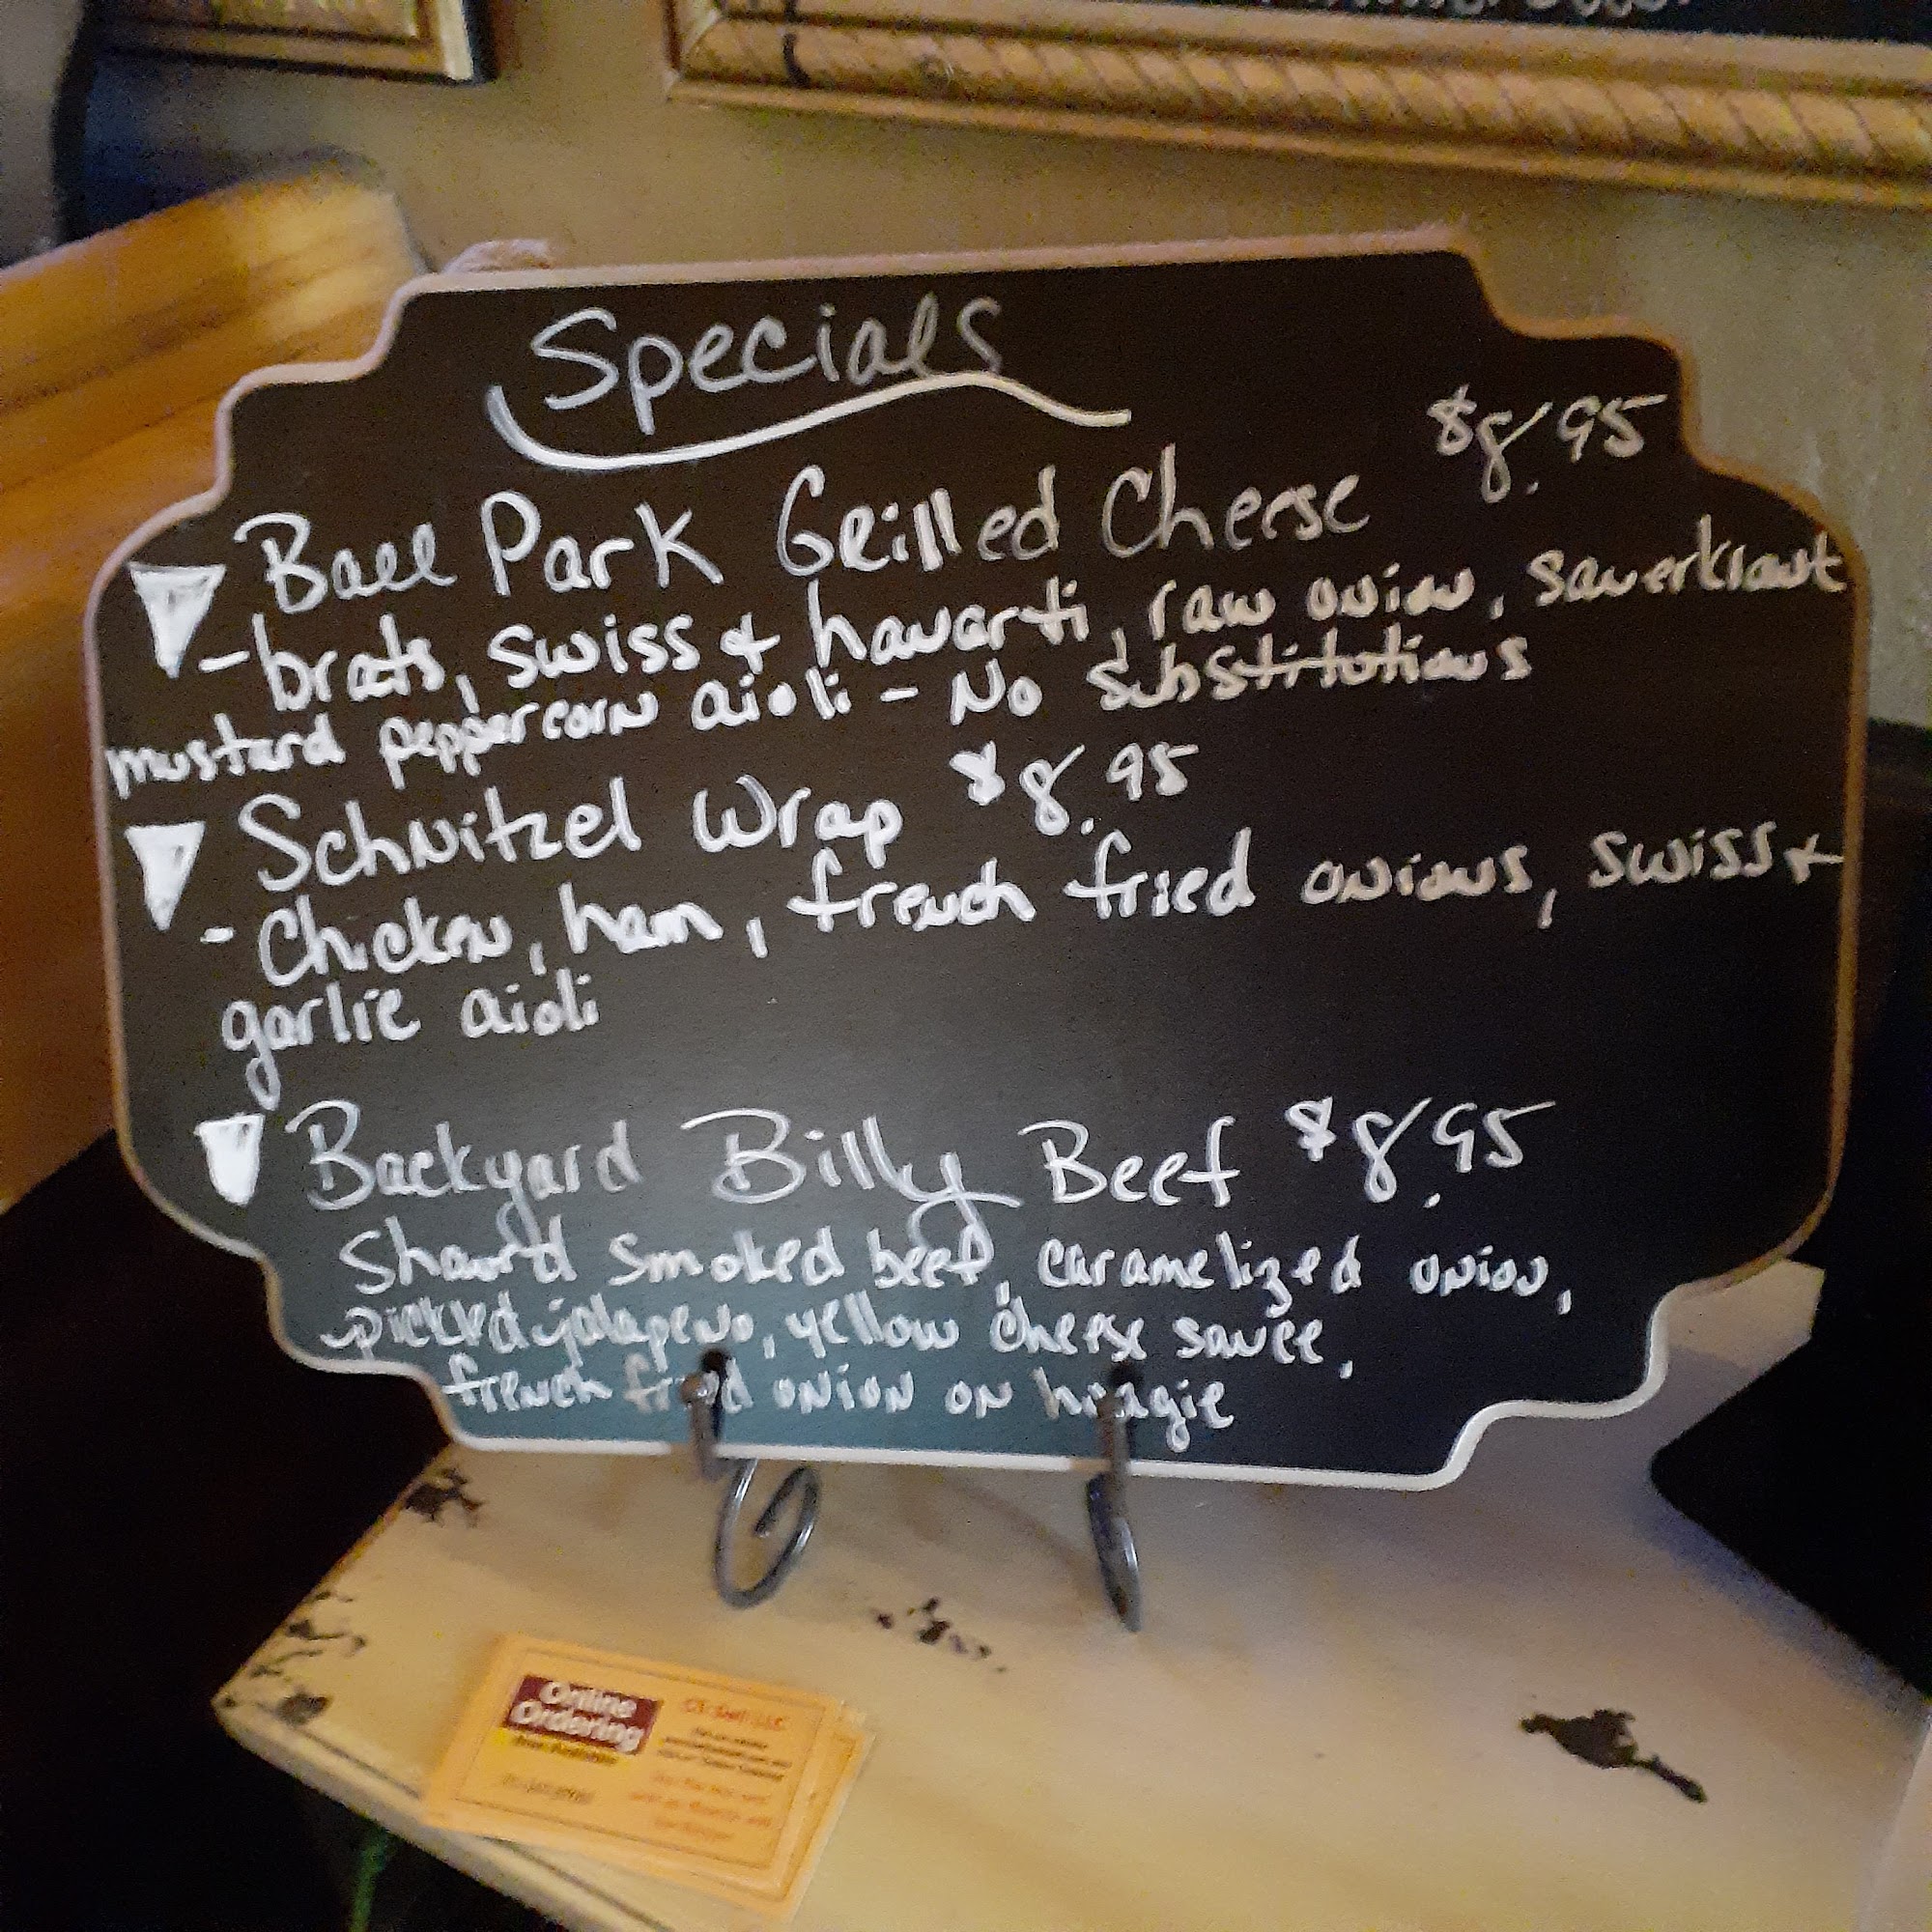 Specials
Ball Park Grilled Cheese $8.95
- brats, swiss & havarti, raw onion, sauerkraut
mustard peppercorn aioli - No substitutions
Schnitzel Wrap $8.95
- Chicken, ham, french fried onions, swiss &
garlic aioli
Backyard Billy Beef $8.95
smoked beef, caramelized onion,
pickled jalapeno, yellow cheese sauce,
french fried onion on hoagie
Online
Ordering